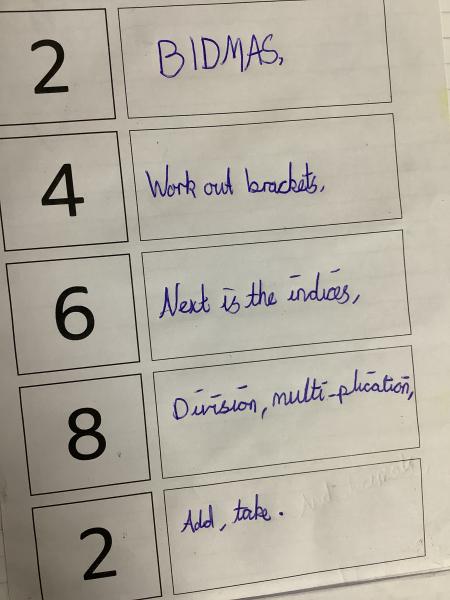 2 BIDMAS,
4 Work out brackets,
6 Next is the indices,
8 Division, multi-plication,
2 Add, take.